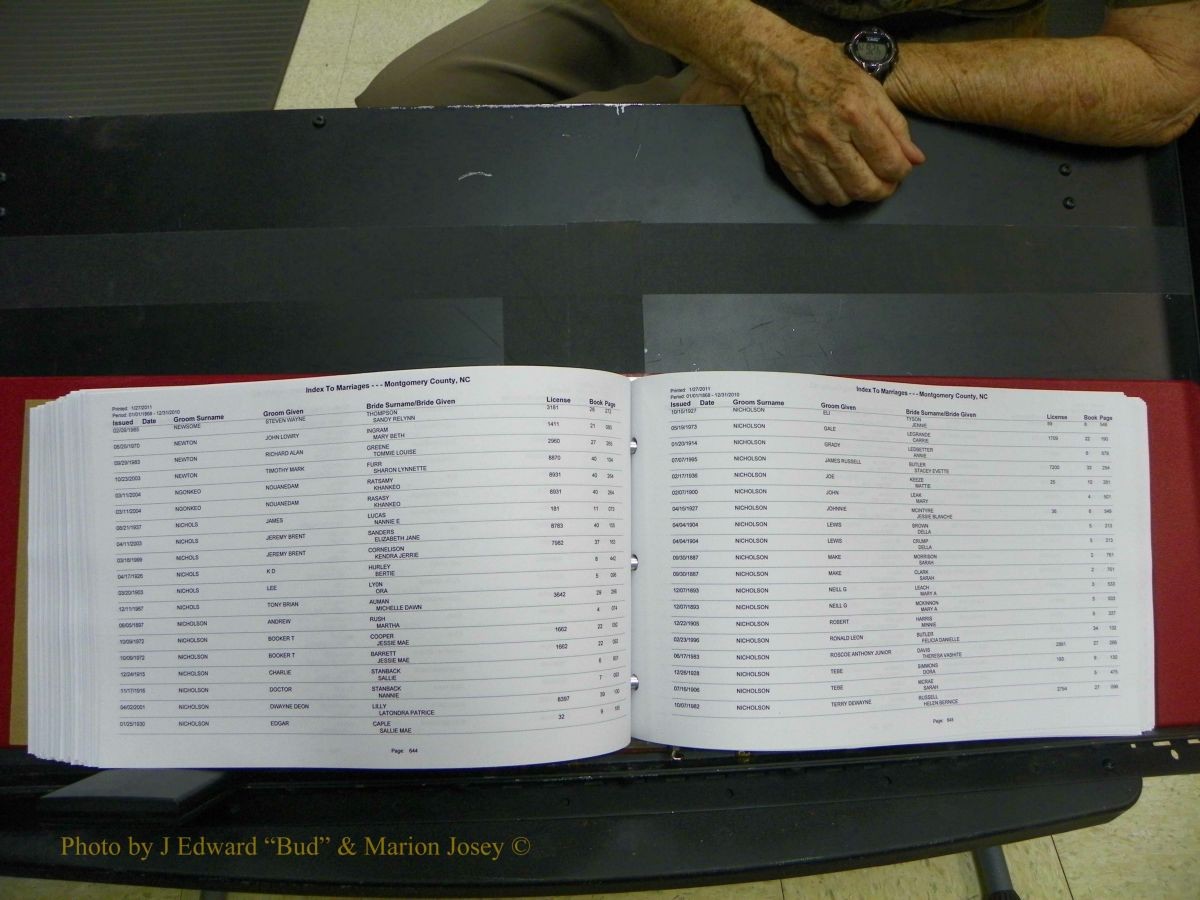 Index To Marriages - - - Montgomery County, NC
Printed: 1/27/2011
Period: 01/01/1868 - 12/31/2010
Issued Date Groom Surname Groom Given Bride Surname/Bride Given License Book Page
02/09/1985 NEWSOME STEVEN WAYNE THOMPSON 3181 28 272
SANDY RELYNN
06/20/1970 NEWTON JOHN LOWRY INGRAM 1411 21
MARY BETH
09/29/1983 NEWTON RICHARD ALAN GREENE 2960 27
TOMMIE LOUISE
10/23/2003 NEWTON TIMOTHY MARK FURR 8870 40 104
SHARON LYNNETTE
03/11/2004 NGONKEO NOUANEDAM RATSAMY 8931 40 264
KHANKEO
03/11/2004 NGONKEO NOUANEDAM RASASY 8931 40 264
KHANKEO
08/21/1937 NICHOLS JAMES LUCAS 181 11 073
NANNIE E
04/11/2003 NICHOLS JEREMY BRENT SANDERS 8783 40
ELIZABETH JANE
03/18/1999 NICHOLS JEREMY BRENT CORNELISON 7982 37
KENDRA JERRIE
04/17/1926 NICHOLS K D HURLEY 8 442
BERTIE
03/20/1903 NICHOLS LEE LYON 5
ORA
12/11/1987 NICHOLS TONY BRIAN AUMAN 3642 29
MICHELLE DAWN
08/05/1897 NICHOLSON ANDREW RUSH 4 074
MARTHA
10/09/1972 NICHOLSON BOOKER T COOPER 1662 22
JESSIE MAE
10/09/1972 NICHOLSON BOOKER T BARRETT 1662 22
JESSIE MAE
12/24/1915 NICHOLSON CHARLIE STANBACK 6
SALLIE
11/17/1916 NICHOLSON DOCTOR STANBACK 7
NANNIE
04/02/2001 NICHOLSON DWAYNE DEON LILLY 8397 39
LATONDRA PATRICE
01/25/1930 NICHOLSON EDGAR CAPLE 32 9
SALLIE MAE
Page 644
Index To Marriages - - - Montgomery County, NC
Printed: 1/27/2011
Period: 01/01/1868 - 12/31/2010
Issued Date Groom Surname Groom Given Bride Surname/Bride Given License Book Page
10/15/1927 NICHOLSON ELI TYSON 89 8 546
JENNIE
05/19/1973 NICHOLSON GALE LEGRANDE 1709 22 190
CARRIE
01/20/1914 NICHOLSON GRADY LEDBETTER 6 578
ANNIE
07/07/1995 NICHOLSON JAMES RUSSELL BUTLER 7200 33 254
STACEY EVETTE
02/17/1936 NICHOLSON JOE KEEZE 25 10 281
MATTIE
02/07/1900 NICHOLSON JOHN LEAK 4 501
MARY
04/16/1927 NICHOLSON JOHNNIE MCINTYRE 36 8 549
JESSIE BLANCHE
04/04/1904 NICHOLSON LEWIS BROWN 5 213
DELLA
04/04/1904 NICHOLSON LEWIS CRUMP 5 213
DELLA
09/30/1887 NICHOLSON MAKE MORRISON 2 761
SARAH
09/30/1887 NICHOLSON MAKE CLARK 2 761
SARAH
12/07/1893 NICHOLSON NEILL G LEACH 3 533
MARY A
12/07/1893 NICHOLSON NEILL G MCKINNON 3 533
MARY A
12/22/1905 NICHOLSON ROBERT HARRIS 5 337
MINNIE
02/23/1996 NICHOLSON RONALD LEON BUTLER 34 102
FELICIA DANIELLE
06/17/1983 NICHOLSON ROSCOE ANTHONY JUNIOR DAVIS 2881 27
THERESA VASHITE
12/26/1928 NICHOLSON TEBE SIMMONS 193 9 132
DORA
07/16/1906 NICHOLSON TEBE MCRAE 5 475
SARAH
10/07/1982 NICHOLSON TERRY DEWAYNE RUSSELL 2754 27
HELEN BERNICE
Page 645
Photo by J Edward “Bud” & Marion Josey ©